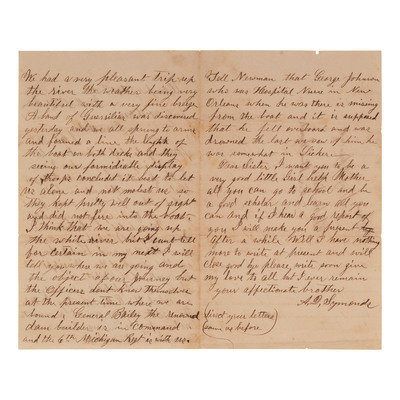 We had a very pleasant trip up
the river the weather being very
beautiful with a very fine breeze
A band of Guerrillas was discovered
yesterday and we all sprung to arms
and formed a line the length of
the boat on both decks and they
seeing our formidable display
of troops concluded it best to let
us alone and not molest us so
they kept pretty well out of gunshot
and did not fire into the boat.
I think that we are going up
the white river but I cant tell
for certain in my next I will
tell you where we are going and
the object of our journey but
the Officers dont know themselves
at the present time where we are
bound. General Bailey the renowned
dam builder is in Command
and the 6th Michigan Regt is with us.
Tell Newman that George Johnson
who was Hospital Nurse in New
Orleans when he was there is missing
from the boat and it is supposed
that he fell overboard and was
drowned the last we saw of him he
was somewhat in Licker.
Now Sister I want you to be a
very good little Girl help Mother
all you can go to school and be
a good scholar and learn all you
can and if I hear a good report of
you I will make you a present
after a while. Well I have nothing
more to write at present and will
close good bye please write soon give
my love to all but I ever remain
your affectionate brother
A. D. Symonds
Direct your letters
same as before